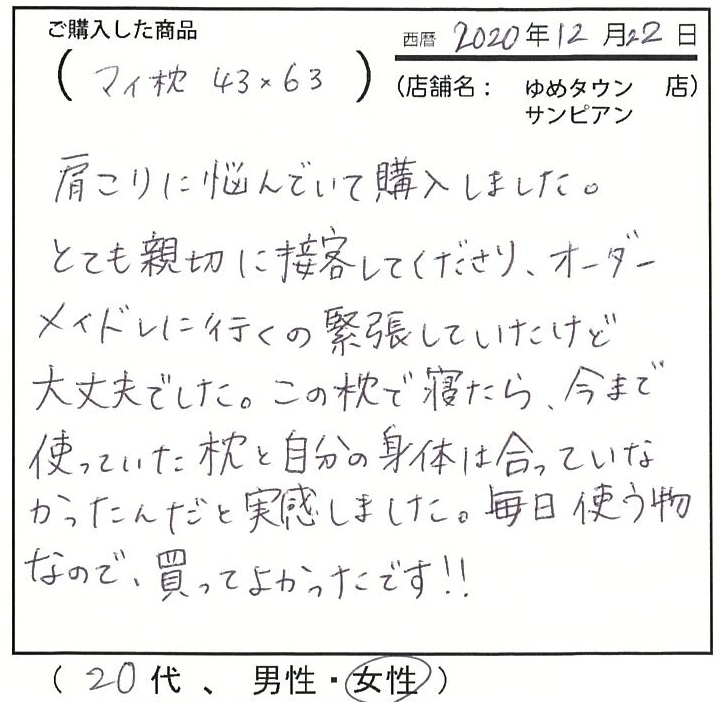 ご購入した商品
西暦 2020年12月22日
(マイ枕 43×63)
(店舗名: ゆめタウン 店)
サンピアン
肩こりに悩んでいて購入しました。
とても親切に接客してくださり、オーダー
メイドしに行くの緊張していたけど
大丈夫でした。この枕で寝たら、今まで
使っていた枕と自分の身体は合っていな
かったんだと実感しました。毎日使う物
なので、買ってよかったです!!
(20代、男性・女性)